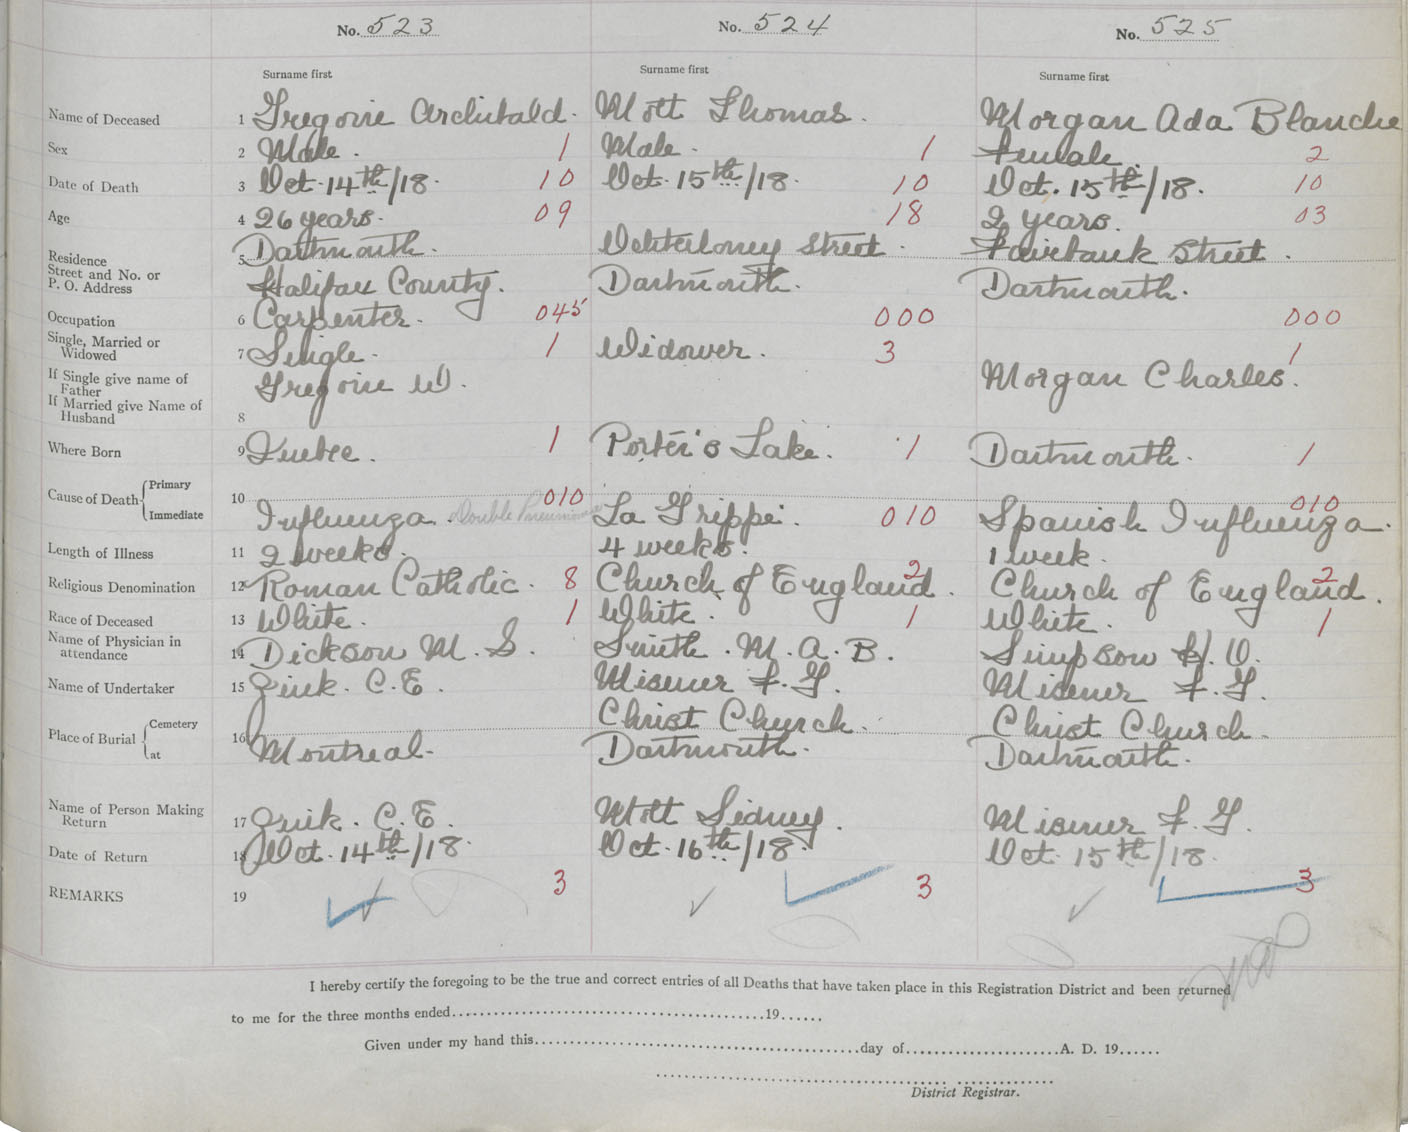 No. 523 No. 524 No. 525
Surname first Surname first Surname first
Name of Deceased 1 Gregoire Archibald. Mott Thomas. Morgan Ada Blanche
Sex 2 Male. 1 Male. 1 Female. 2
Date of Death 3 Oct. 14th/18. 10 Oct. 15th/18. 10 Oct. 15th/18. 10
Age 4 26 years. 09 18 2 years. 03
Residence 5 Dartmouth. Ochterloney Street. Fairbank Street.
Street and No. or
P. O. Address Halifax County. Dartmouth. Dartmouth.
Occupation 6 Carpenter. 045 000 000
Single, Married or
Widowed 7 Single. 1 Widower. 3 1
If Single give name of
Father Gregoire W. Morgan Charles.
If Married give Name of
Husband 8
Where Born 9 Quebec. 1 Porter's Lake. 1 Dartmouth. 1
Cause of Death Primary 10 010 010
Immediate Influenza. Double Pneumonia La Grippe. 010 Spanish Influenza.
Length of Illness 11 2 weeks. 4 weeks. 1 week.
Religious Denomination 12 Roman Catholic. 8 Church of England. 2 Church of England. 2
Race of Deceased 13 White. 1 White. 1 White. 1
Name of Physician in
attendance 14 Dickson M. S. Smith. M. A. B. Simpson H. O.
Name of Undertaker 15 Zink. C. E. Misener F. G. Misener F. G.
Place of Burial Cemetery 16 Christ Church. Christ Church.
at Montreal. Dartmouth. Dartmouth.
Name of Person Making
Return 17 Zink. C. E. Mott Sidney. Misener F. G.
Date of Return 18 Oct. 14th/18. Oct. 16th/18. Oct. 15th/18.
REMARKS 19 3 3 3
I hereby certify the foregoing to be the true and correct entries of all Deaths that have taken place in this Registration District and been returned
to me for the three months ended 19
Given under my hand this day of A. D. 19
District Registrar.